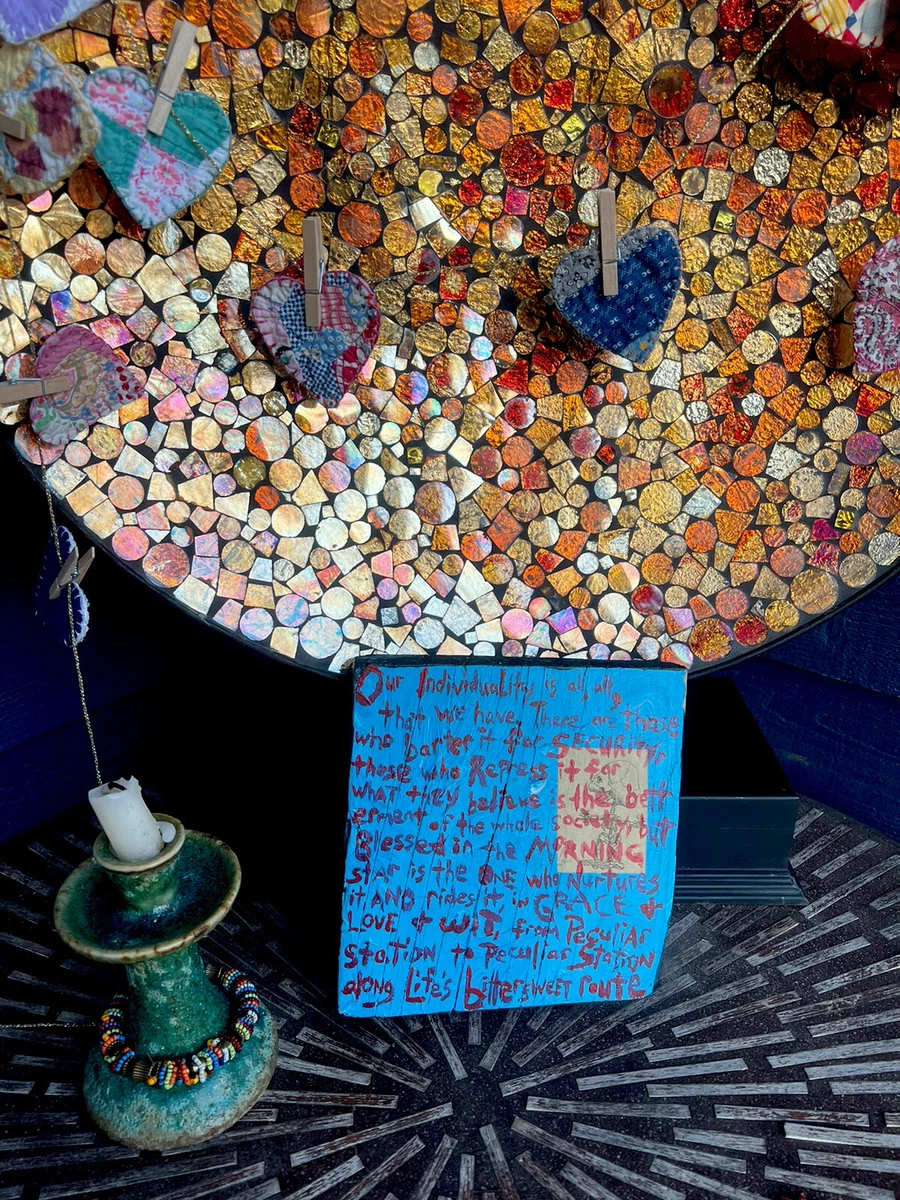 Our Individuality is all, all,
that we have. There are those
who barter it for SECURITY,
those who Repress it for
WHAT they believe is the bett
erment of the whole society, but
Blessed in the MORNING
star is the ONE who Nurtures
it AND rides it, in GRACE &
LOVE & WIT, from Peculiar
Station to Peculiar Station
along Life's bittersweet route